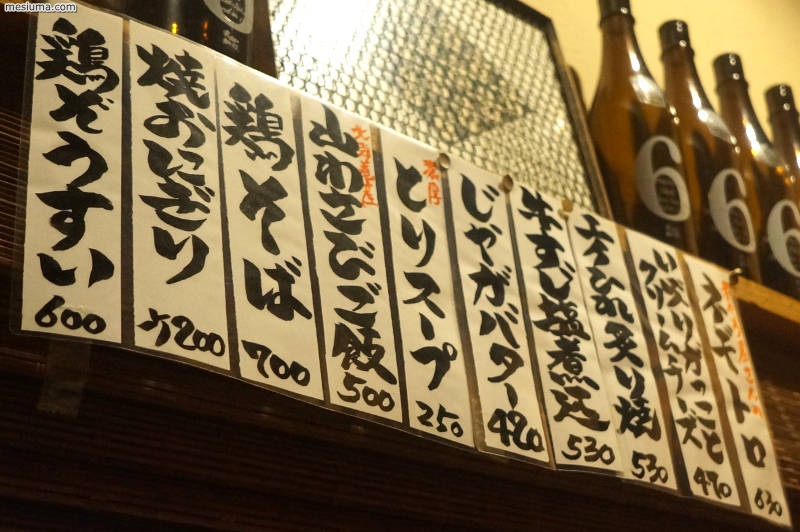 mesiuma.com
ネギトロ
630
いぶりがっこと
クリームチーズ
470
エイひれ炙り焼
530
牛すじ塩煮込
530
じゃがバター
420
濃厚
とりスープ
250
山わさびご飯
500
鶏そば
700
焼おにぎり
200
鶏ぞうすい
600
6
6
6